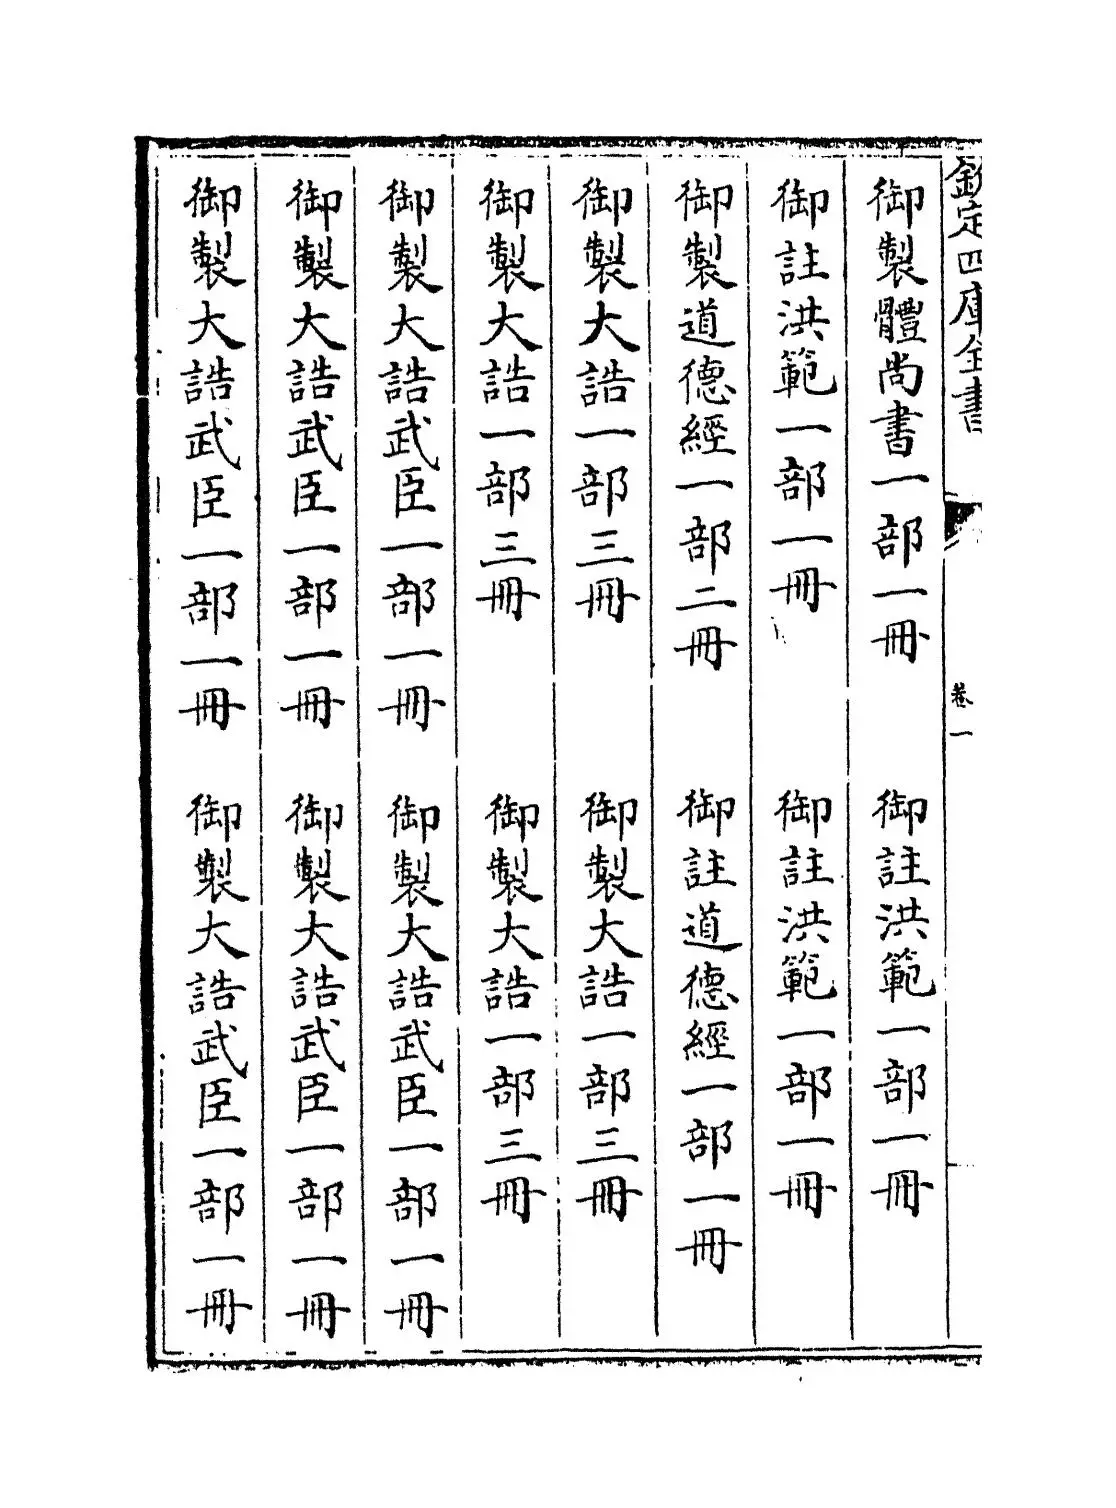 欽定四庫全書
卷一
御製體尚書一部一冊　御註洪範一部一冊
御註洪範一部一冊　御註洪範一部一冊
御製道德經一部二冊　御註道德經一部一冊
御製大誥一部三冊　御製大誥一部三冊
御製大誥一部三冊　御製大誥一部三冊
御製大誥武臣一部一冊　御製大誥武臣一部一冊
御製大誥武臣一部一冊　御製大誥武臣一部一冊
御製大誥武臣一部一冊　御製大誥武臣一部一冊